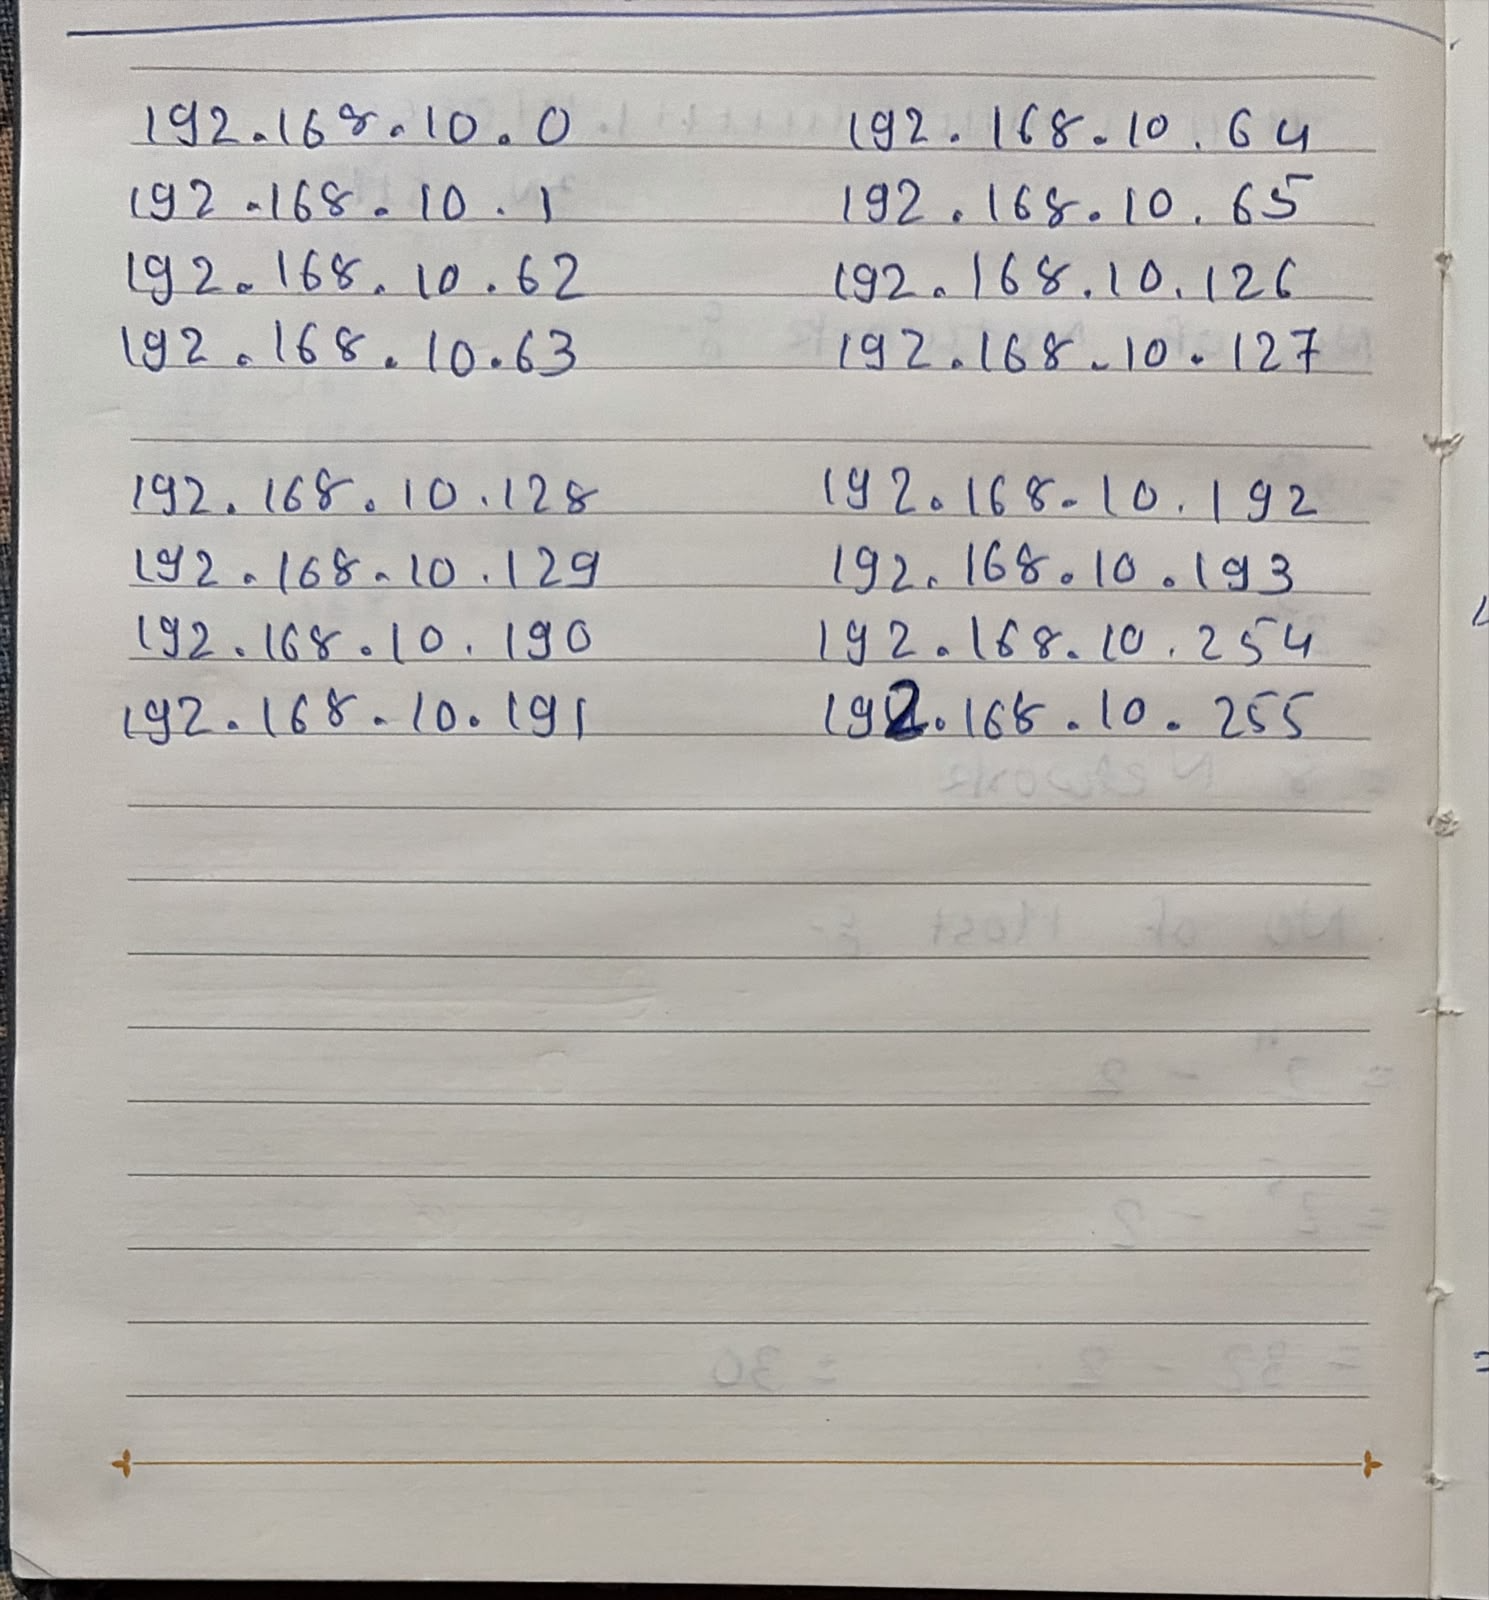 192.168.10.0 192.168.10.64
192.168.10.1 192.168.10.65
192.168.10.62 192.168.10.126
192.168.10.63 192.168.10.127
192.168.10.128 192.168.10.192
192.168.10.129 192.168.10.193
192.168.10.190 192.168.10.254
192.168.10.191 192.168.10.255